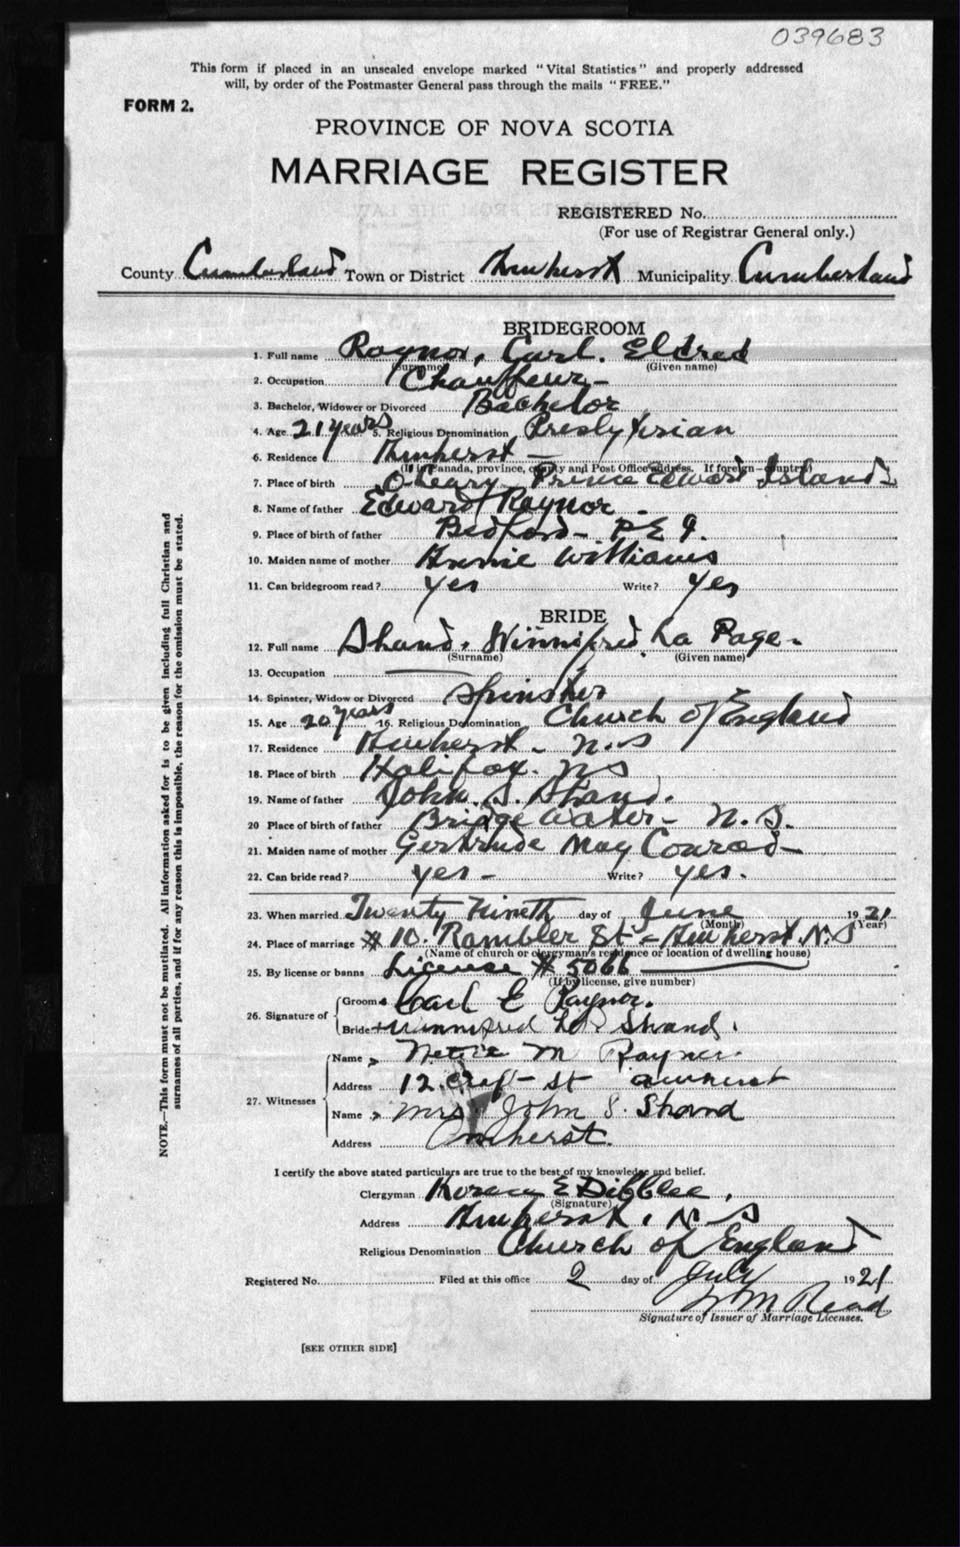 039683
This form if placed in an unsealed envelope marked "Vital Statistics" and properly addressed
will, by order of the Postmaster General pass through the mails "FREE."
FORM 2.
PROVINCE OF NOVA SCOTIA
MARRIAGE REGISTER
REGISTERED No.
(For use of Registrar General only.)
County Cumberland Town or District Amherst Municipality Cumberland
BRIDEGROOM
1. Full name Raynor, Carl. Eldred
(Surname) (Given name)
2. Occupation Chauffeur -
3. Bachelor, Widower or Divorced Bachelor
4. Age 21 years 5. Religious Denomination Presbyterian
6. Residence Amherst -
(If in Canada, province, county and Post Office address. If foreign - country)
7. Place of birth O-Leary Prince Edward Island
8. Name of father Edward Raynor -
9. Place of birth of father Bedford - P E I.
10. Maiden name of mother Annie Williams
11. Can bridegroom read? Yes Write? Yes
BRIDE
12. Full name Shand, Winnifred La Page -
(Surname) (Given name)
13. Occupation
14. Spinster, Widow or Divorced Spinster
15. Age 20 years 16. Religious Denomination Church of England
17. Residence Amherst - N.S
18. Place of birth Halifax. NS
19. Name of father John. S. Shand.
20 Place of birth of father Bridgewater - N.S.
21. Maiden name of mother Gertrude May Conrad -
22. Can bride read? yes - Write? yes.
23. When married Twenty Nineth day of June 1921
(Month) (Year)
24. Place of marriage # 10. Rambler St - Amherst. N.S
(Name of church or clergyman's residence or location of dwelling house)
25. By license or banns License # 5066
(If by license, give number)
26. Signature of Groom Carl E Raynor.
Bride Winnifred La P Shand.
27. Witnesses Name Nettie M Raynor.
Address 12 Croft St Amherst
Name Mrs John S. Shand
Address Amherst.
I certify the above stated particulars are true to the best of my knowledge and belief.
Clergyman Horace E Dibblee.
(Signature)
Address Amherst. N.S
Religious Denomination Church of England
Registered No. Filed at this office 2 day of July 1921
Read
Signature of Issuer of Marriage Licenses.
[SEE OTHER SIDE]
NOTE.—This form must not be mutilated. All information asked for is to be given including full Christian and
surnames of all parties, and if for any reason this is impossible, the reason for the omission must be stated.